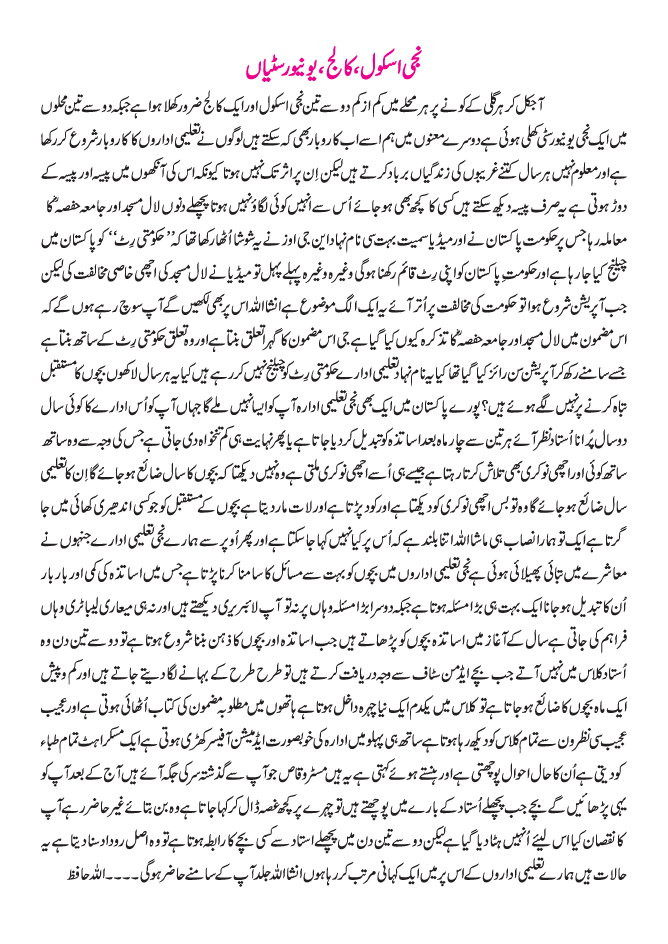 نجی اسکول، کالج، یونیورسٹیاں
آجکل کر ہر گلی کے کونے پر ہر محلے میں کم از کم دو سے تین نجی اسکول اور ایک کالج ضرور کھلا ہوا ہے جبکہ دو سے تین محلوں
میں ایک نجی یونیورسٹی کھلی ہوئی ہے دوسرے معنوں میں ہم اسے اب کاروبار بھی کہ سکتے ہیں لوگوں نے تعلیمی اداروں کا کاروبار شروع کر رکھا
ہے اور معلوم نہیں ہر سال کتنے غریبوں کی زندگیاں برباد کرتے ہیں لیکن اِن پر اثر تک نہیں ہوتا کیونکہ اس کی آنکھوں میں پیسہ اور پیسہ کے
دوڑ ہوتی ہے یہ صرف پیسہ دیکھ سکتے ہیں کسی کا کچھ بھی ہو جائے اُس سے انہیں کوئی لگاؤ نہیں ہوتا پچھلے دنوں لال مسجد اور جامعہ حفصہؓ کا
معاملہ رہا جس پر حکومت پاکستان نے اور میڈیا سمیت بہت سی نام نہاد این جی اوز نے یہ شوشا اُٹھا رکھا تھا کہ ’’حکومتی رِٹ‘‘ کو پاکستان میں
چیلنج کیا جا رہا ہے اور حکومتِ پاکستان کو اپنی رِٹ قائم رکھنا ہوگی وغیرہ وغیرہ پہلے پہل تو میڈیا نے لال مسجد کی اچھی خاصی مخالفت کی لیکن
جب آپریشن شروع ہوا تو حکومت کی مخالفت پر اُتر آئے یہ ایک الگ موضوع ہے انشااللہ اس پر بھی لکھیں گے آپ سوچ رہے ہوں گے کہ
اس مضمون میں لال مسجد اور جامعہ حفصہؓ کا تذکرہ کیوں کیا گیا ہے جی اس مضمون کا گہرا تعلق بنتا ہے اور وہ تعلق حکومتی رِٹ کے ساتھ بنتا ہے
جسے سامنے رکھ کر آپریشن سن رائز کیا گیا تھا کیا یہ نام نہاد تعلیمی ادارے حکومتی رِٹ کو چیلنج نہیں کر رہے ہیں کیا یہ ہر سال لاکھوں بچوں کا مستقبل
تباہ کرنے پر نہیں لگے ہوئے ہیں؟ پورے پاکستان میں ایک بھی نجی تعلیمی ادارہ آپ کو ایسا نہیں ملے گا جہاں آپ کو اُس ادارے کا کوئی سال
دو سال پُرانا اُستاد نظر آئے ہر تین سے چار ماہ بعد اساتذہ کو تبدیل کر دیا جاتا ہے یا پھر نہایت ہی کم تنخواہ دی جاتی ہے جس کی وجہ سے وہ ساتھ
ساتھ کوئی اور اچھی نوکری بھی تلاش کرتا رہتا ہے جیسے ہی اُسے اچھی نوکری ملتی ہے وہ نہیں دیکھتا کہ بچوں کا سال ضائع ہو جائے گا اِن کا تعلیمی
سال ضائع ہو جائے گا وہ تو بس اچھی نوکری کو دیکھتا ہے اور کود پڑتا ہے اور لات مار دیتا ہے بچوں کے مستقبل کو جو کسی اندھیری کھائی میں جا
گرتا ہے ایک تو ہمارا نصاب ہی ماشااللہ اتنا بلند ہے کہ اُس پر کیا نہیں کہا جا سکتا ہے اور پھر اُوپر سے ہمارے نجی تعلیمی ادارے جنہوں نے
معاشرے میں تبائی پھیلائی ہوئی ہے نجی تعلیمی اداروں میں بچوں کو بہت سے مسائل کا سامنا کرنا پڑتا ہے جس میں اساتذہ کی کمی اور بار بار
اُن کا تبدیل ہو جانا ایک بہت ہی بڑا مسئلہ ہوتا ہے جبکہ دوسرا بڑا مسئلہ وہاں پر نہ تو آپ لائبریری دیکھتے ہیں اور نہ ہی معیاری لیباٹری وہاں
فراہم کی جاتی ہے سال کے آغاز میں اساتذہ بچوں کو پڑھاتے ہیں جب اساتذہ اور بچوں کا ذہن بننا شروع ہوتا ہے تو دو سے تین دن وہ
اُستاد کلاس میں نہیں آتے جب بچے ایڈمن سٹاف سے وجہ دریافت کرتے ہیں تو طرح طرح کے بہانے لگا دیتے جاتے ہیں اور کم و پیش
ایک ماہ بچوں کا ضائع ہو جاتا ہے تو کلاس میں یکدم ایک نیا چہرہ داخل ہوتا ہے ہاتھوں میں مطلوبہ مضمون کی کتاب اُٹھائی ہوتی ہے اور عجیب
عجیب سی نظروں سے تمام کلاس کو دیکھ رہا ہوتا ہے ساتھ ہی پہلو میں ادارہ کی خوبصورت ایڈمیشن آفیسر کھڑی ہوتی ہے ایک مسکراہٹ تمام طلباء
کو دیتی ہے اُن کا حال احوال پوچھتی ہے اور ہنستے ہوئے کہتی ہے یہ ہیں مسٹر وقاص جو آپ سے گذشتہ سر کی جگہ آئے ہیں آج کے بعد آپ کو
یہی پڑھائیں گے بچے جب پچھلے اُستاد کے بارے میں پوچھتے ہیں تو چہرے پر کچھ غصہ ڈال کر کہا جاتا ہے وہ بن بتائے غیر حاضر رہے آپ
کا نقصان کیا اس لیئے اُنہیں ہٹا دیا گیا ہے لیکن دو سے تین دن میں پچھلے استاد سے کسی بچے کا رابطہ ہوتا ہے تو وہ اصل روداد سنا دیتا ہے یہ
حالات ہیں ہمارے تعلیمی اداروں کے اس پر میں ایک کہانی مرتب کر رہا ہوں انشااللہ جلد آپ کے سامنے حاضر ہوگی ۔۔۔۔ اللہ حافظ